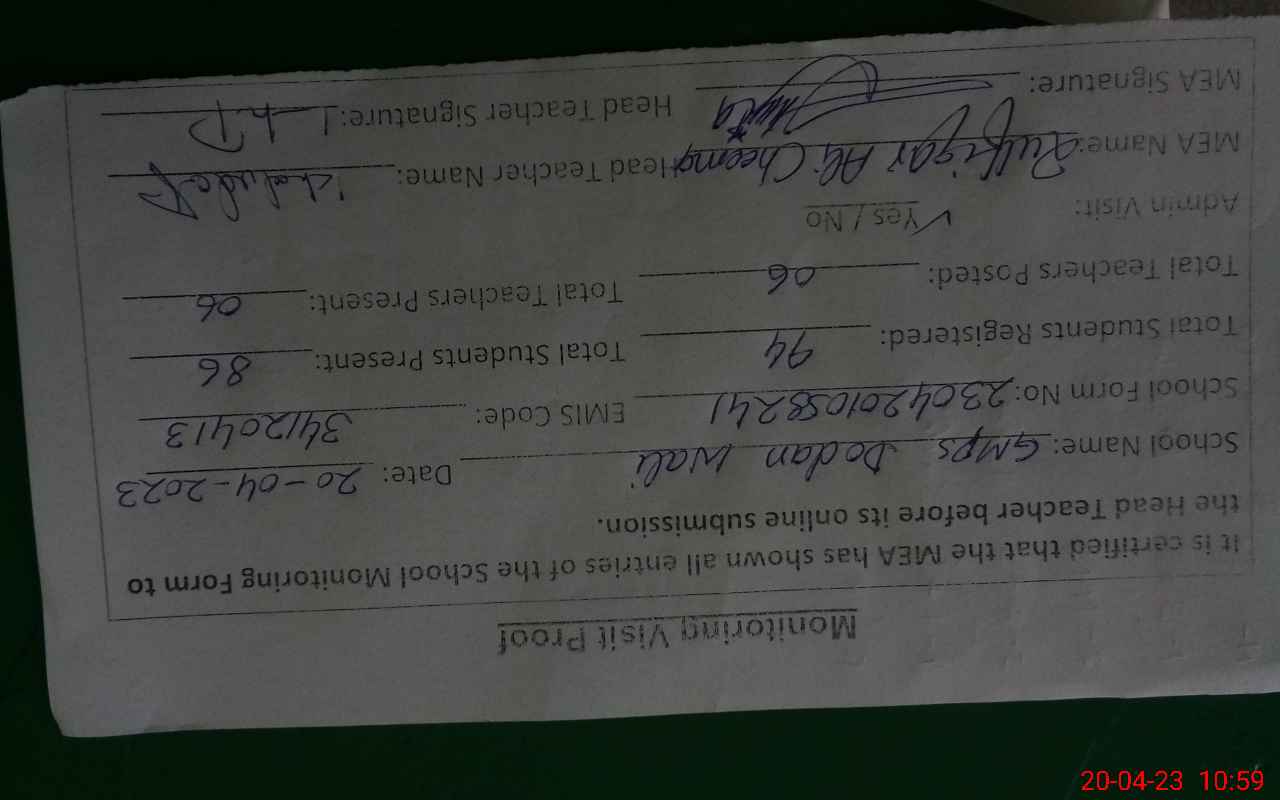 Monitoring Visit Proof
It is certified that the MEA has shown all entries of the School Monitoring Form to
the Head Teacher before its online submission.
School Name: GMPS Dodan Wali Date: 20-04-2023
School Form No: 2304201058241 EMIS Code: 34120413
Total Students Registered: 94 Total Students Present: 86
Total Teachers Posted: 06 Total Teachers Present: 06
Admin Visit: ✓Yes / No
MEA Name: Zulfiqar Ali Cheema Head Teacher Name:
MEA Signature: Head Teacher Signature:
20-04-23 10:59